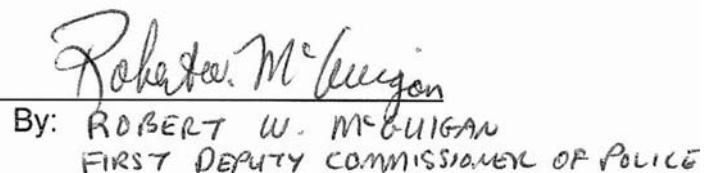 Robert W. McGuigan
By: ROBERT W. McGUIGAN
FIRST DEPUTY COMMISSIONER OF POLICE